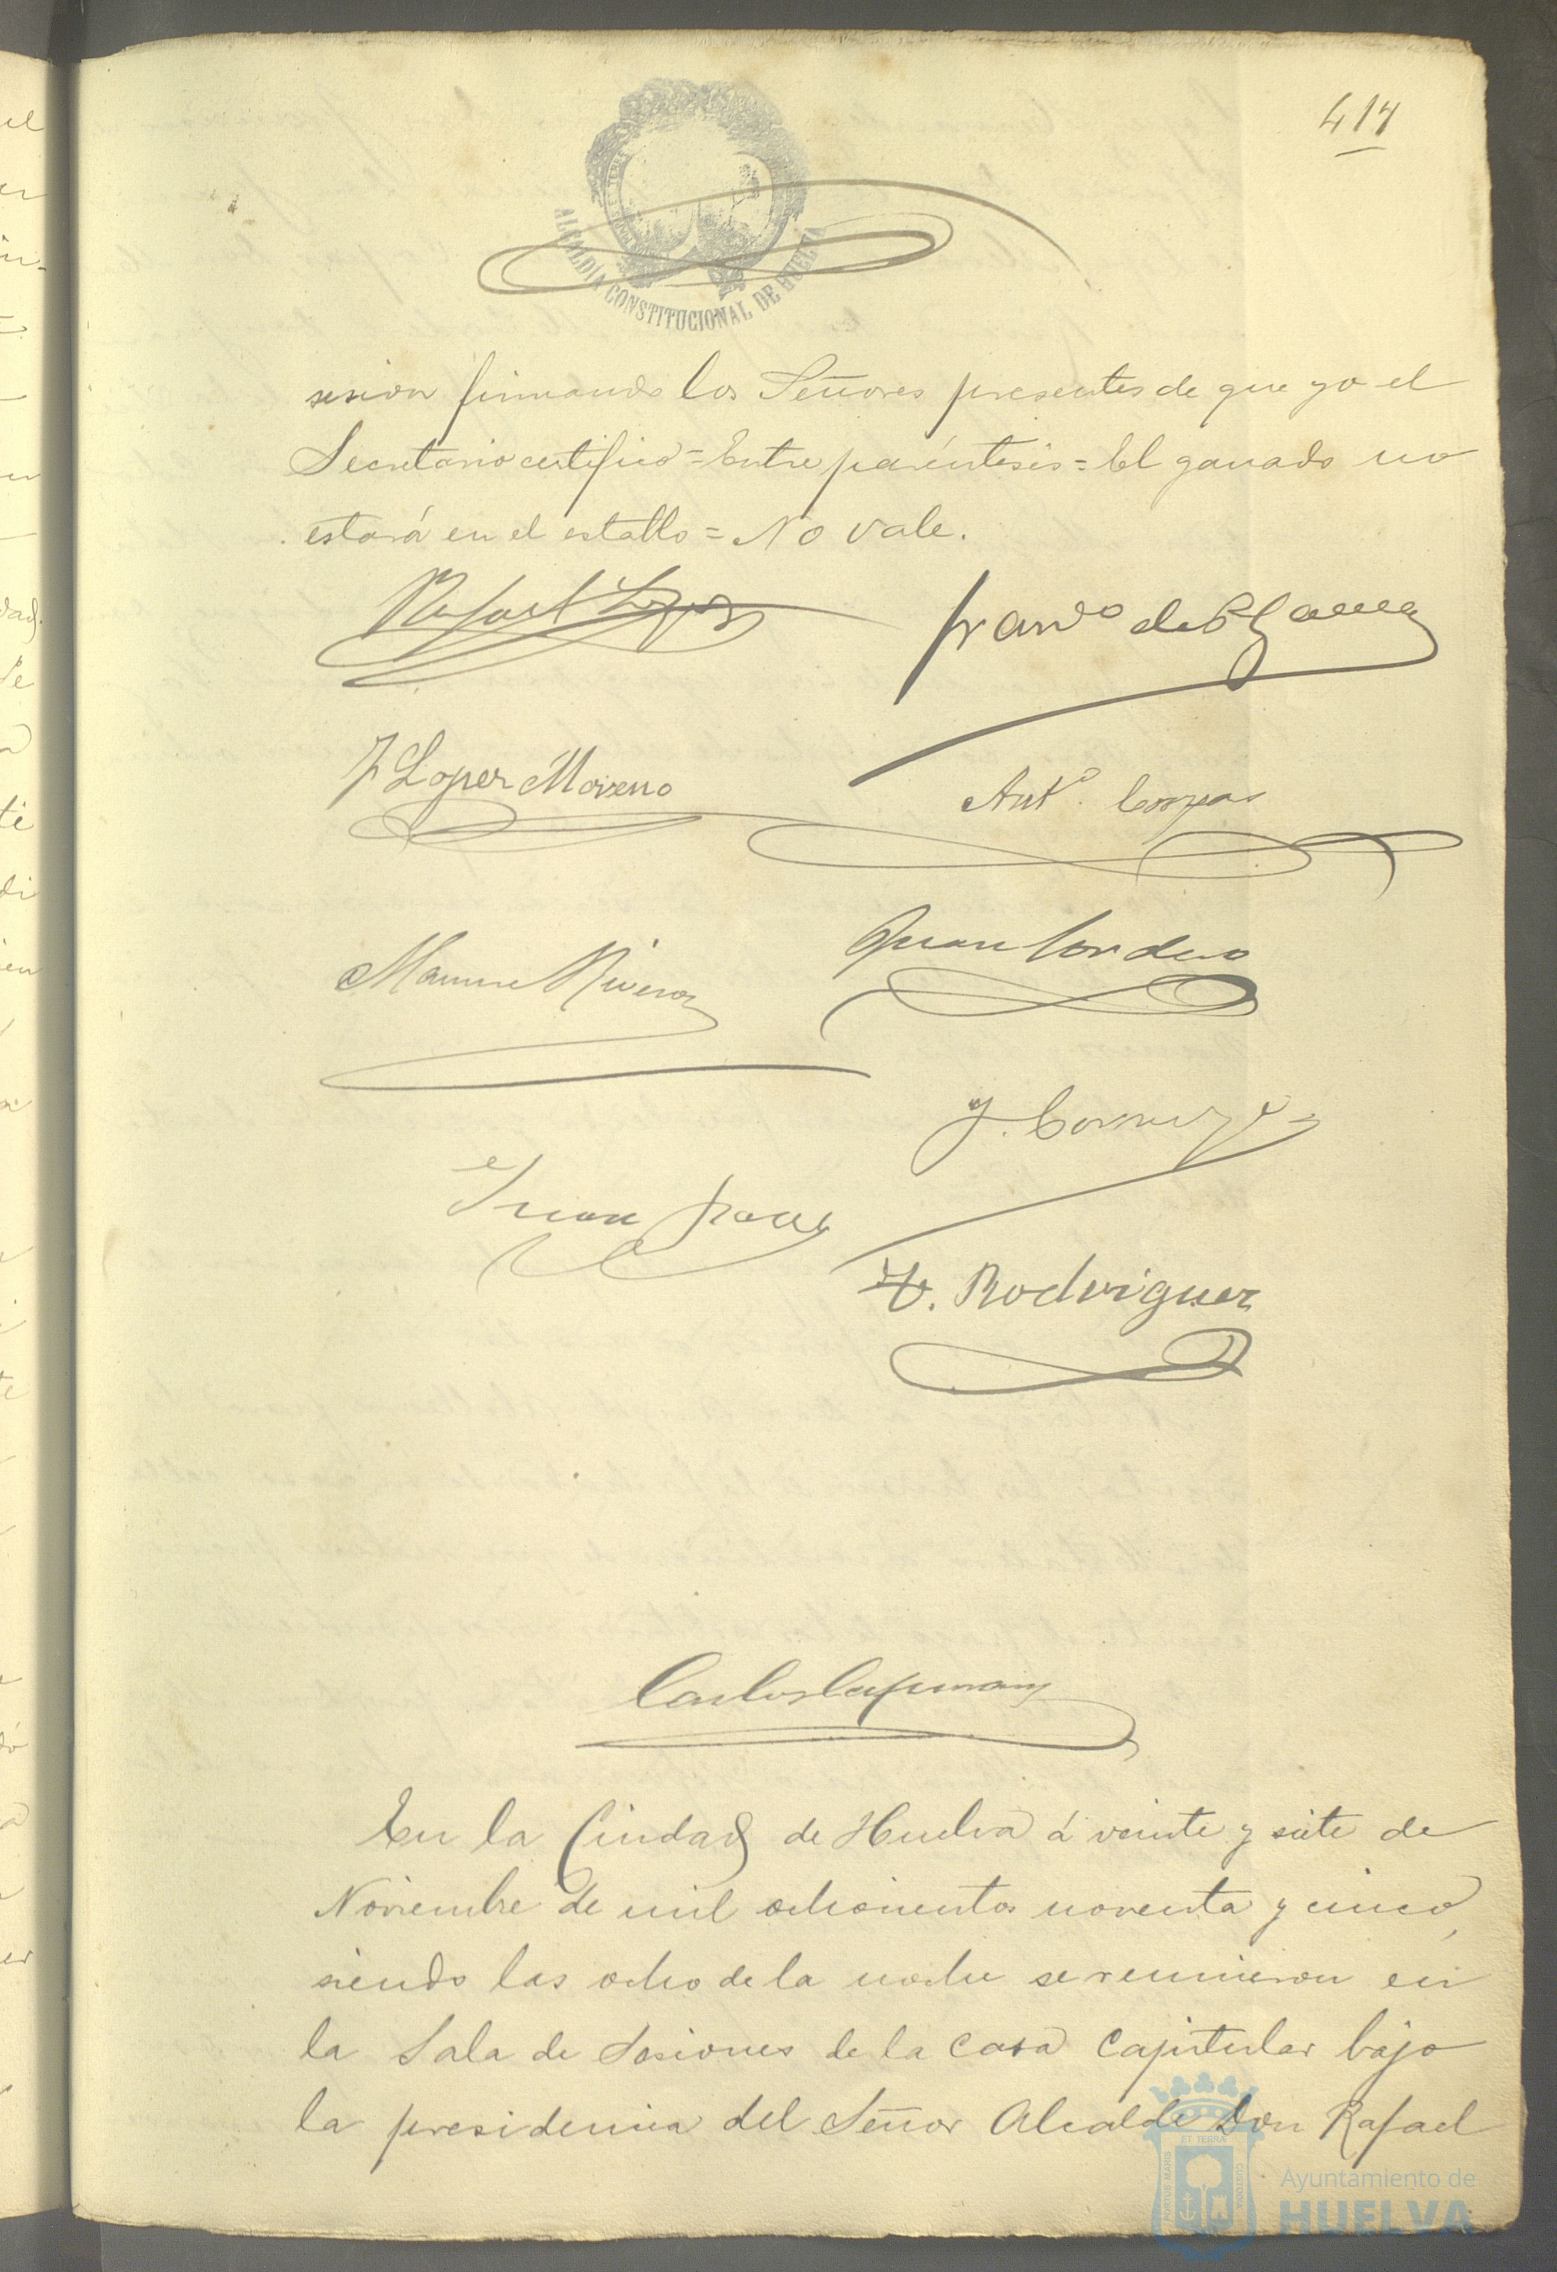 417
ALCALDÍA CONSTITUCIONAL DE HUELVA
sesion firmando los Señores presentes de que yo el
Secretario certifico = Entre paréntesis = El ganado no
estará en el establo = No vale.
Rafael Lopez
Franco de P. Garcia
J Lopez Moreno
Anto.
Manuel Rivero
Juan Cordero
J.
Juan
F. Rodriguez
Carlos
En la Ciudad de Huelva á veinte y siete de
Noviembre de mil ochocientos noventa y cinco,
siendo las ocho de la noche se reunieron en
la Sala de Sesiones de la Casa Capitular bajo
la presidencia del Señor Alcalde Don Rafael
PORTUS MARIS ET TERRÆ CUSTODIA
Ayuntamiento de
HUELVA